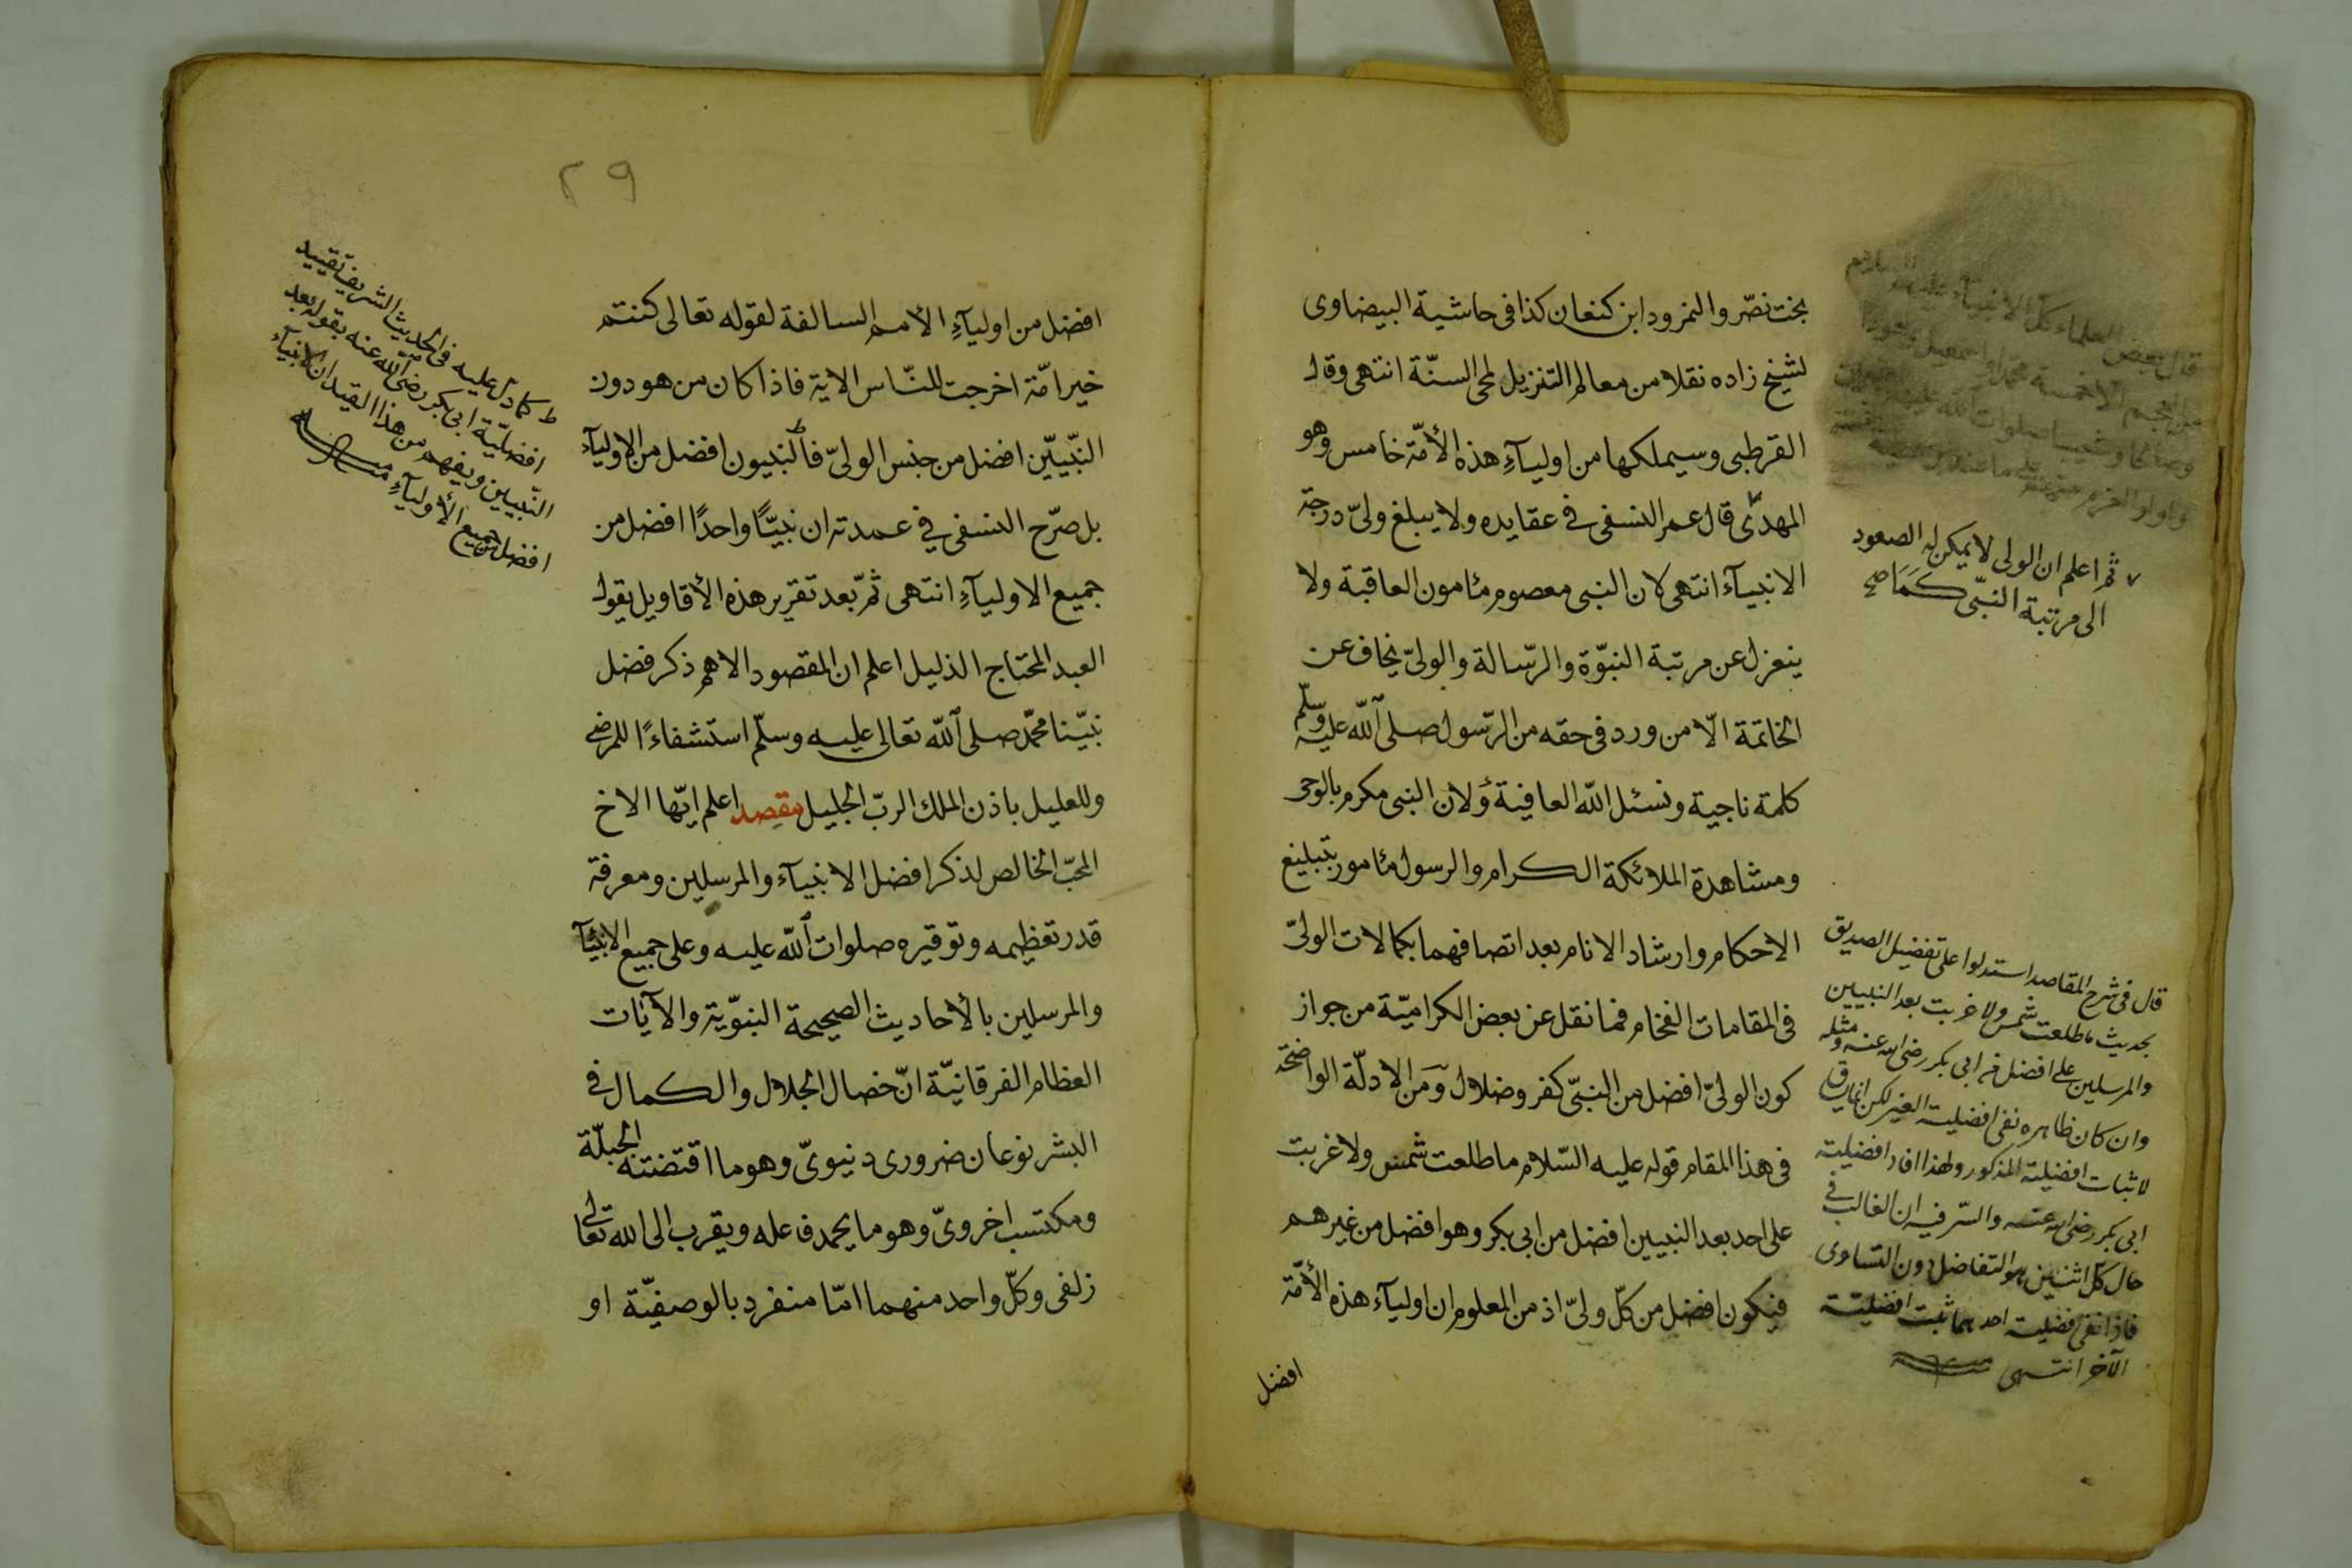 بخت نصّر والنمرود ابن كنعان كذا فى حاشية البيضاوى
لشيخ زاده نقلا من معالم التنزيل لمحى السنّة انتهى وقال
القرطبى وسيملكها من اوليآءِ هذه الأمّة خامس وهو
المهدىّ قال عمر النسفى فى عقايده ولا يبلغ ولىّ درجة
الانبيآء انتهى لان النبى معصوم مأمون العاقبة ولا
ينعزل عن مرتبة النبوّة والرّسالة والولىّ يخاف عن
الخاتمة الّا من ورد فى حقه من الرّسول صلى الله عليه وسلّم
كلمة ناجية ونسئل الله العافية وَلان النبى مكرم بالوحى
ومشاهدة الملائكة الكرام والرسول مأمور بتبليغ
الاحكام وارشاد الانام بعد اتصافهما بكمالات الولىّ
فى المقامات الفخام فما نقل عن بعض الكراميّة من جواز
كون الولىّ افضل من النبىّ كفر وضلال وَمَن الادلّة الواضحة
فى هذا المقام قوله عليه السّلام ما طلعت شمس ولا غربت
على احد بعد النبيين افضل من ابى بكر وهو افضل من غيرهم
فيكون افضل من كلّ ولىّ اذ من المعلوم ان اوليآء هذه الأمّة
افضل
قال بعض العلماء كل الانبيآء السلام
من العجم الا خمسة محمد اسمعيل وهودا
وصالحا وشعيبا صلوات الله عليهم
واولوا العزم
٧ ثم اعلم ان الولى لا يمكن له الصعود
الى مرتبة النبىّ كَمَا صح
قال فى شرح المقاصد استدلوا على تفضيل الصديق
بحديث ما طلعت شمس ولا غربت بعد النبيين
والمرسلين على افضل من ابى بكر رضى الله عنه ومثله
وان كان ظاهره نفى افضلية الغير لكن انما يساق
لاثبات افضلية المذكور ولهذا افاد افضلية
ابى بكر رضى الله عنه والسّر فيه ان الغالب فى
حال كل اثنين هو التفاضل دون التساوى
فاذا نفى افضلية احدهما ثبت افضلية
الآخر انتهى
٢٩
افضل من اوليآءِ الأمم السالفة لقوله تعالى كنتم
خير امّة اخرجت للنّاس الاية فاذا كان من هو دون
النّبيّين افضل من جنس الولىّ فالنبيون افضل من الاوليآء
بل صرّح النسفى فى عمدته ان نبيًّا واحدًا افضل من
جميع الاوليآءِ انتهى ثمّ بعد تقرير هذه الأقاويل يقول
العبد المحتاج الذليل اعلم ان المقصود الاهم ذكر فضل
نبيّنا محمّد صلى الله تعالى عليه وسلّم استشفاءً للمرضى
وللعليل باذن الملك الربّ الجليل مقصد اعلم ايّها الاخ
المحبّ الخالص لذكر افضل الانبيآء والمرسلين ومعرفة
قدر تعظيمه وتوقيره صلوات الله عليه وعلى جميع الانبيآء
والمرسلين بالأحاديث الصحيحة النبوّية والآيَات
العظام الفرقانيّة انّ خصال الجلال والكمال فى
البشر نوعان ضرورى دنيوىّ وهو ما اقتضته الجبلّة
ومكتسب اخروىّ وهو ما يحمد فاعله ويقرب الى الله تعالى
زلفى وكلّ واحد منهما امّا منفرد بالوصفيّة او
ط كما دل عليه فى الحديث الشريف تقييد
افضليّة ابى بكر رضى الله عنه بقوله بعد
النّبيين ويفهم من هذا القيد ان الانبيآء
افضل من جميع الأوليآءِ